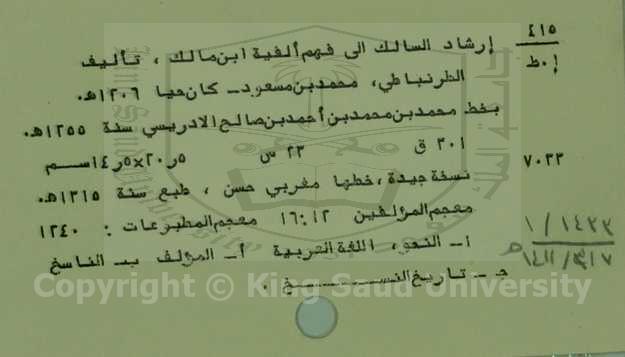 ٤١٥
إ٠ط
إرشاد السالك الى فهم ألفية ابن مالك ، تأليف
الطرنباطي، محمد بن مسعود ــ كان حيا ١٢٠٦هـ.
بخط محمد بن محمد بن أحمد بن صالح الادريسي سنة ١٢٥٥هـ.
٣٠١ ق ٢٣ س ٢٠٫٥×١٤٫٥ ســم
٧٠٣٣
نسخة جيدة ، خطها مغربي حسن ، طبع سنة ١٣١٥هـ.
معجم المؤلفين ١٢:١٦ معجم المطبوعات : ١٢٤٠
١ـ النحو، اللغة العربية أ ـ المؤلف ب ـ الناسخ
ج ــ تاريخ النســــــــــخ .
١ / ١٤٣٣
Copyright © King Saud University